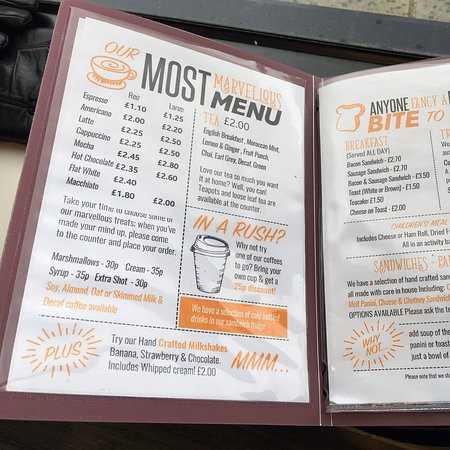 OUR
MOST
MARVELIOUS
MENU
Reg Large
Espresso £1.10 £1.25
Americano £2.00 £2.50
Latte £2.25 £2.50
Cappuccino £2.25 £2.50
Mocha £2.45 £2.80
Hot Chocolate £2.35 £2.60
Flat White £2.40
Macchiato £1.80 £2.00
Take your time to choose some of
our marvelous treats; when you've
made your mind up, please come
to the counter and place your order.
Marshmallows - 30p Cream - 35p
Syrup - 35p Extra Shot - 30p
Soy, Almond, Oat or Skimmed Milk &
Decaf coffee available
TEA £2.00
English Breakfast, Moroccan Mint,
Lemon & Ginger, Fruit Punch,
Chai, Earl Grey, Decaf, Green
Love our tea so much you want
it at home? Well, you can!
Teapots and loose leaf tea are
available at the counter.
IN A RUSH?
Why not try
one of our coffees
to go? Bring your
own cup & get a
25p discount!
We have a selection of cold bottled
drinks in our sandwich fridge
PLUS
Try our Hand Crafted Milkshakes
Banana, Strawberry & Chocolate.
Includes Whipped cream! £2.00
MMM...
ANYONE FANCY A
BITE TO
BREAKFAST
(Served ALL DAY)
Bacon Sandwich - £2.70
Sausage Sandwich - £2.70
Bacon & Sausage Sandwich - £3.50
Toast (White or Brown) - £1.50
Teacake £1.50
Cheese on Toast - £2.00
CHILDREN'S MEAL
Includes Cheese or Ham Roll, Dried
All in an activity
SANDWICHES
A selection of hand crafted
all made with care in house including:
Melt Panni, Cheese & Chutney
OPTIONS AVAILABLE Please ask the
WHY NOT...
add soup of the
panini or toast
just a bowl of
Please note that we